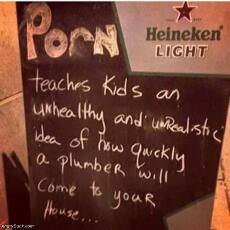 PORN
Heineken
LIGHT
teaches kids an
unhealthy and "unRealistic"
idea of how quickly
a plumber will
come to your
House...
AngryDuck.com